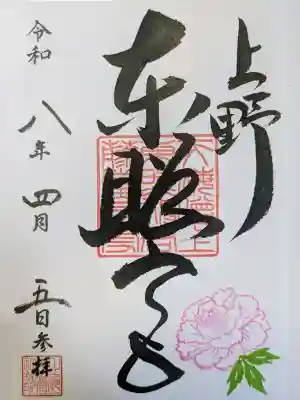 上野
東照宮
令和八年四月五日参拝